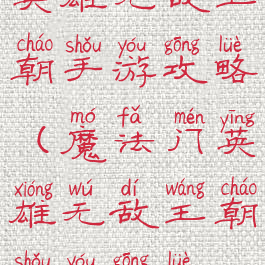 英雄无敌王
cháo shǒu yóu gōng lüè
朝手游攻略
mó fǎ mén yīng
（魔法门英
xióng wú dí wáng cháo
雄无敌王朝
shǒu yóu gōng lüè